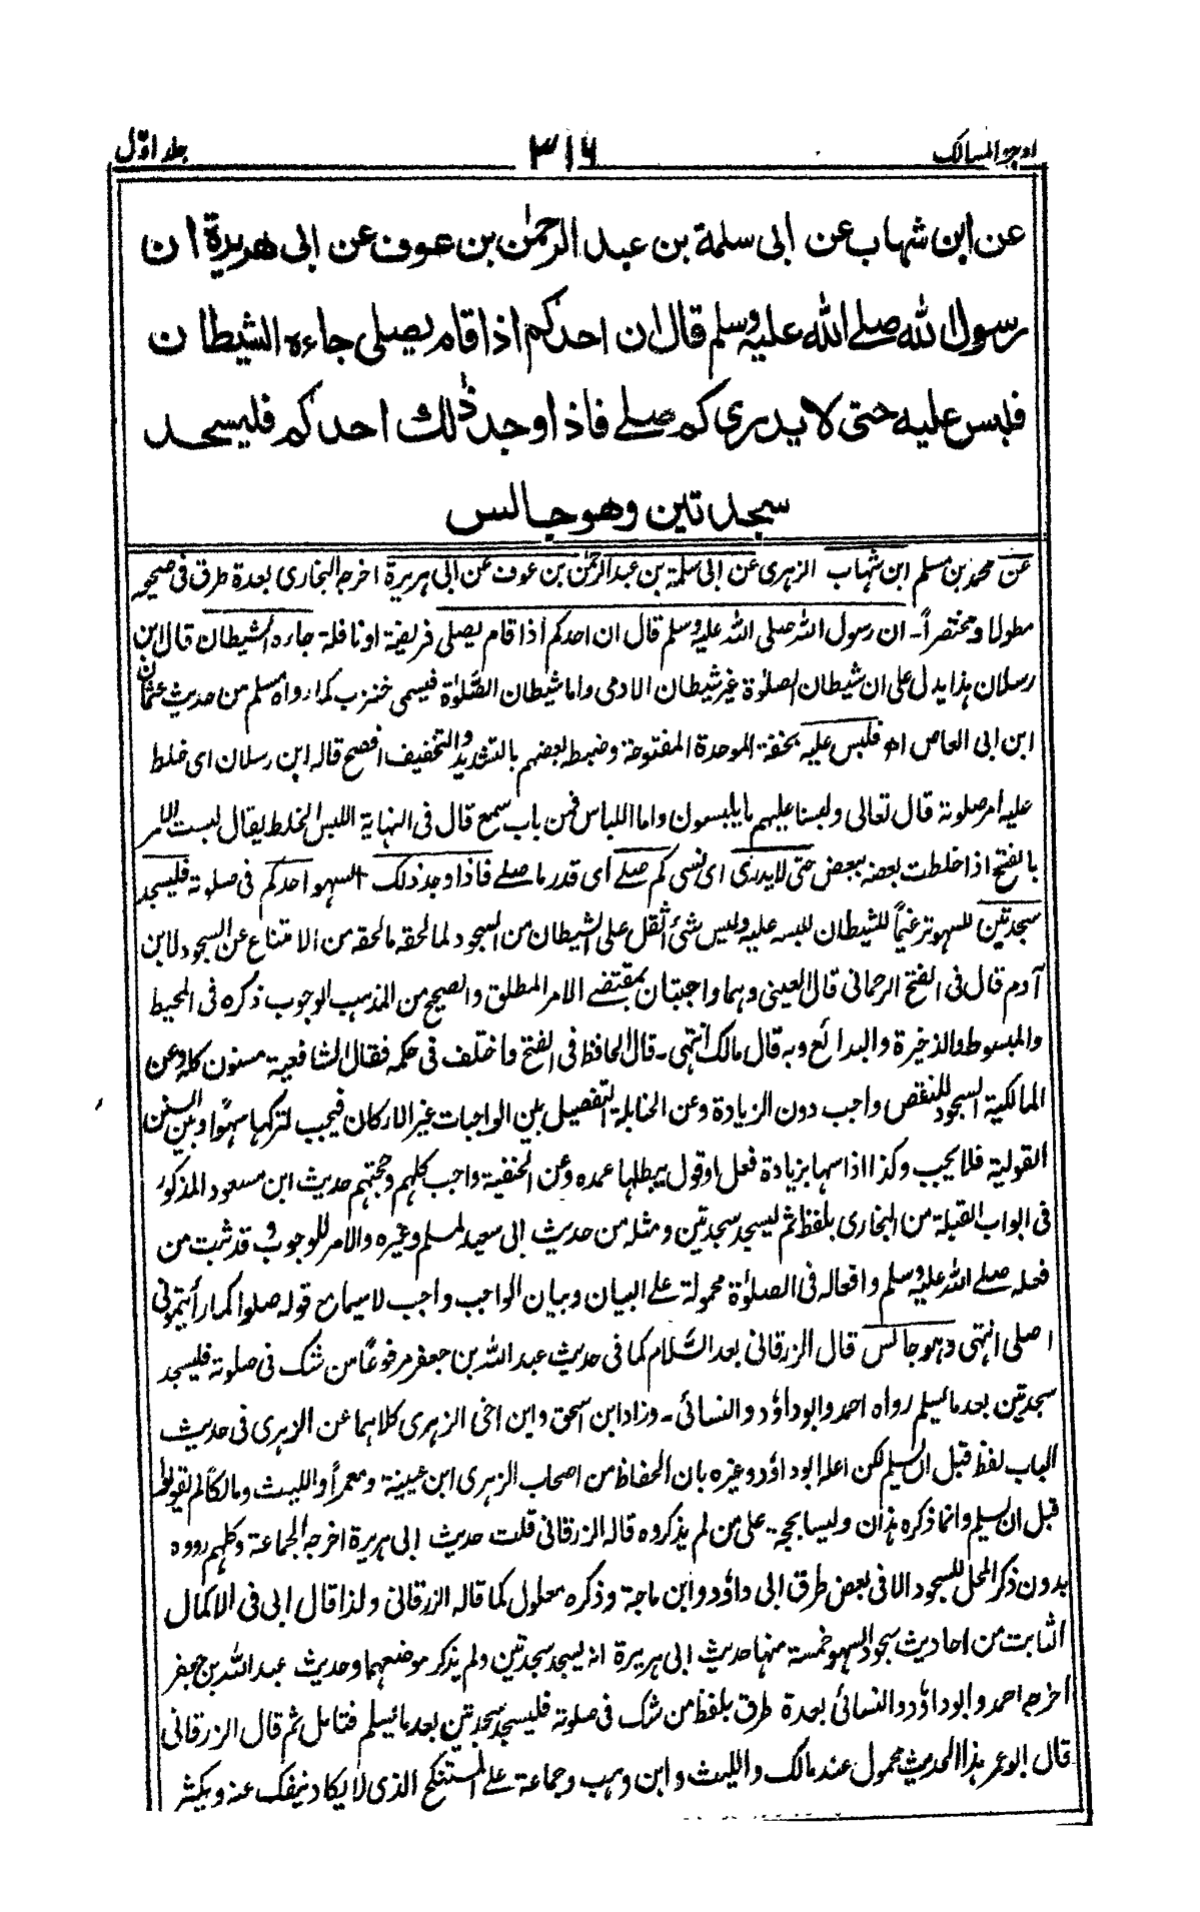 اوجز المسالك ٣١٦ جلد اوّل
عن ابن شهاب عن ابى سلمة بن عبد الرحمٰن بن عوف عن ابى هريرة ان
رسول الله صلے الله عليه وسلم قال ان احدكم اذا قام يصلى جاءه الشيطان
فلبس عليه حتى لا يدرى كم صلے فاذا وجد ذٰلك احدكم فليسجد
سجدتين وهو جالس
عن محمد بن مسلم ابن شهاب الزهرى عن ابى سلمة بن عبد الرحمٰن بن عوف عن ابى هريرة اخرجه البخارى بعدة طرق فى صحيحه
مطولا ومختصراً۔ ان رسول الله صلى الله عليه وسلم قال ان احدكم اذا قام يصلى فريضة او نافلة جاءه الشيطان قال ابن
رسلان هذا يدل على ان شيطان الصلوٰة غير شيطان الادمى واما شيطان الصلوٰة فيسمى خنزب كما رواه مسلم من حديث عثمان
ابن ابى العاص اھ فلبس عليه بخفة الموحدة المفتوحة وضبطه بعضهم بالتشديد والتخفيف افصح قاله ابن رسلان اى خلط
عليه امر صلوته قال تعالى وللبسنا عليهم ما يلبسون واما اللباس فمن باب سمع قال فى النهاية اللبس الخلط يقال لبست الامر
بالفتح اذا خلطت بعضه ببعض حتى لا يدرى اى نسى كم صلے اى قدر ما صلے فاذا وجد ذلك السهو احدكم فى صلوته فليسجد
سجدتين للسهو ترغيماً للشيطان للبسه عليه وليس شئ اثقل على الشيطان من السجود لما لحقه ما لحقه من الامتناع عن السجود لابن
آدم قال فى الفتح الرحمانى قال العينى وهما واجبتان بمقتضے الامر المطلق والصحيح من المذهب الوجوب ذكره فى المحيط
والمبسوط والذخيرة والبدائع وبه قال مالك انتهى۔ قال الحافظ فى الفتح واختلف فى حكمه فقال الشافعية مسنون كله وعن
المالكية السجود للنقص واجب دون الزيادة وعن الحنابلة التفصيل بين الواجبات غير الاركان فيجب لتركها سهوًا وبين السنن
القولية فلا يجب وكذا اذا سها بزيادة فعل او قول يبطلها عمده وعن الحنفية واجب كلهم وحجتهم حديث ابن مسعود المذكور
فى ابواب القبلة من البخارى بلفظ ثم ليسجد سجدتين ومثله من حديث ابى سعيد لمسلم وغيره والامر للوجوب وقد ثبت من
فعله صلے الله عليه وسلم وافعاله فى الصلوٰة محمولة على البيان وبيان الواجب واجب لا سيما مع قوله صلوا كما رأيتمونى
اصلى انتهى وهو جالس قال الزرقانى بعد السَّلام كما فى حديث عبد الله بن جعفر مرفوعًا من شك فى صلوته فليسجد
سجدتين بعد ما يسلم رواه احمد وابو داؤد والنسائى۔ وزاد ابن اسحق وابن اخى الزهرى كلاهما عن الزهرى فى حديث
الباب لفظ قبل ان يسلم لكن اعله ابو داؤد وغيره بان الحفاظ من اصحاب الزهرى ابن عيينة ومعمراً والليث ومالكاً لم يقولوا
قبل ان يسلم وانما ذكره هذان وليسا بحجة على من لم يذكروه قاله الزرقانى قلت حديث ابى هريرة اخرجه الجماعة وكلهم رووه
بدون ذكر المحل للسجود الا فى بعض طرق ابى داؤد وابن ماجة وذكره معلول كما قاله الزرقانى ولذا قال ابى فى الاكمال
الثابت من احاديث سجود السهو خمسة منها حديث ابى هريرة انه يسجد سجدتين ولم يذكر موضعهما وحديث عبد الله بن جعفر
اخرجه احمد وابو داؤد والنسائى بعدة طرق بلفظ من شك فى صلوته فليسجد سجدتين بعد ما يسلم فتامل ثم قال الزرقانى
قال ابو عمر هذا الحديث محمول عند مالك والليث وابن وهب وجماعة على المستنكح الذى لا يكاد ينفك عنه ويكثر